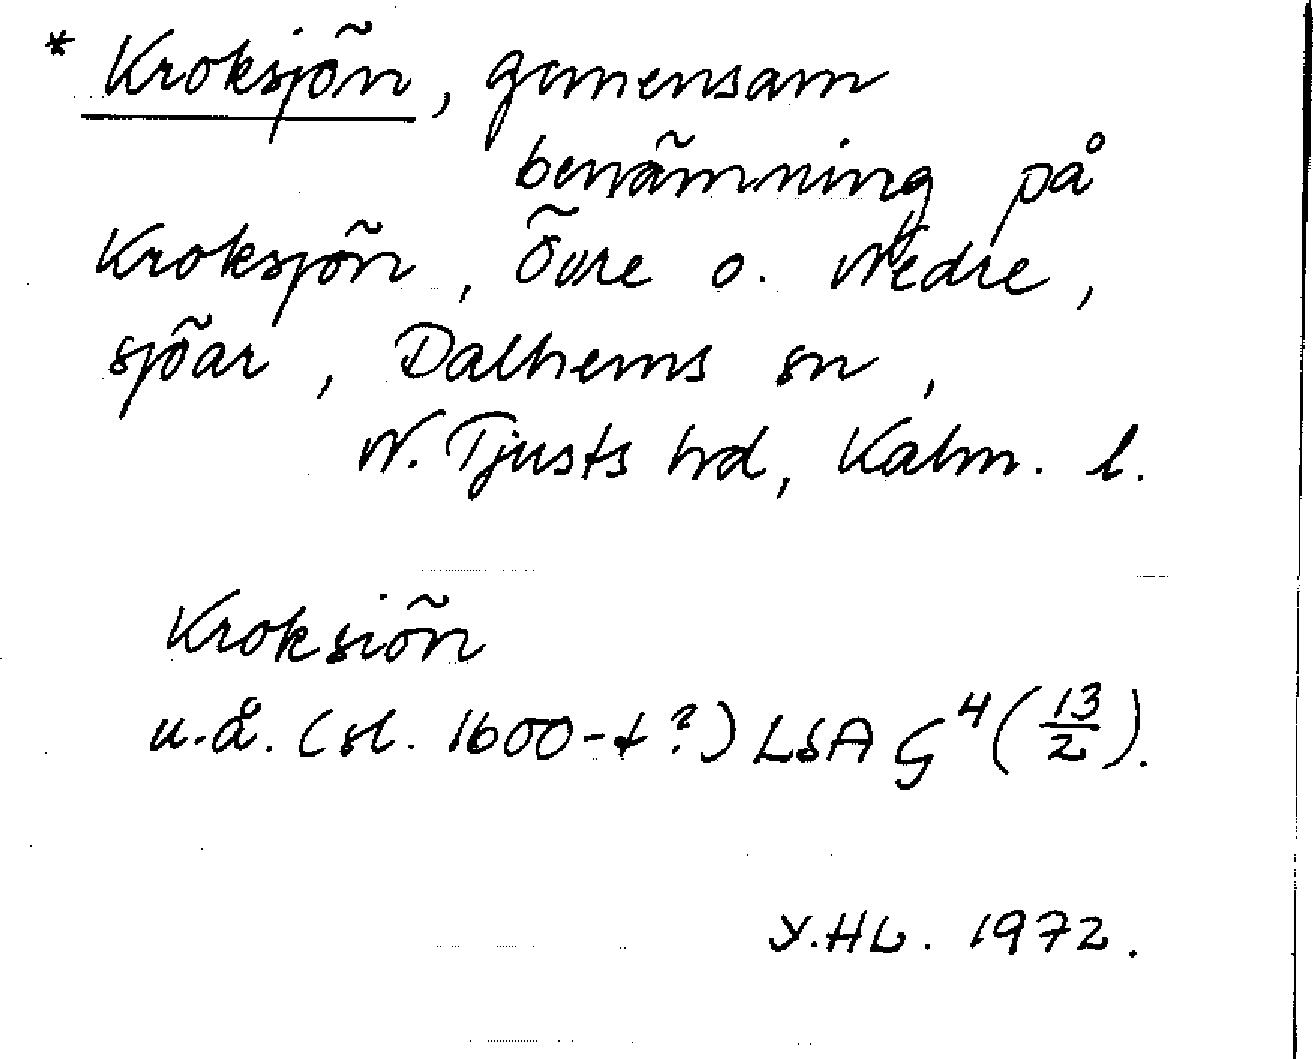 * Kroksjön, gemensam
benämning på
Kroksjön, Övre o. Nedre,
sjöar, Dalhems sn,
N. Tjusts hd, Kalm. l.
Kroksiön
u.å. (sl. 1600-t?) LSA G⁴ (13/2).
Y.HL. 1972.